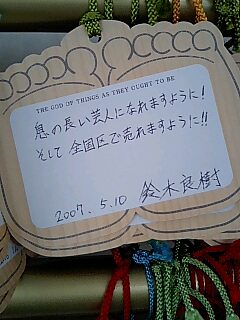 THE GOD OF THINGS AS THEY OUGHT TO BE
息の長い芸人になれますように!
そして全国区で売れますように!!
2007. 5.10 鈴木良樹